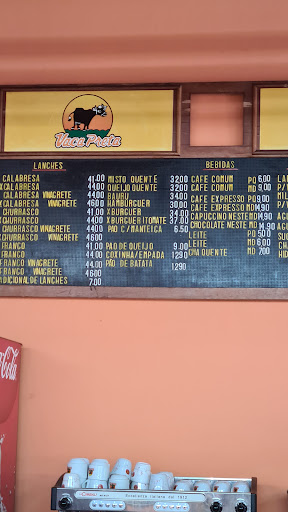 Vaca Preta
LANCHES
BEBIDAS
CALABRESA 41.00
XCALABRESA 44.00
CALABRESA VINAGRETE 44.00
XCALABRESA VINAGRETE 46.00
CHURRASCO 41.00
XCHURRASCO 44.00
CHURRASCO VINAGRETE 44.00
CHURRASCO VINAGRETE 46.00
FRANGO 41.00
FRANGO 44.00
FRANGO VINAGRETE 44.00
FRANGO VINAGRETE 46.00
ADICIONAL DE LANCHES 7.00
MISTO QUENTE 32.00
QUEIJO QUENTE 32.00
BAURU 34.00
HAMBURGUER 30.00
XBURGUER 34.00
XBURGUER TOMATE 37.00
PAO C/MANTEIGA 6.50
PAO DE QUEIJO 9.00
COXINHA/EMPADA 12.90
PÃO DE BATATA 12.90
CAFE COMUM PQ 6.00
CAFE COMUM MD 9.00
CAFE EXPRESSO PQ 9.00
CAFE EXPRESSO MD 14.90
CAPUCCINO NESTLE MD 14.90
CHOCOLATE NESTLE MD 14.90
LEITE PQ 5.00
LEITE MD 6.00
CHA QUENTE MD 7.00
LAR
P/L
MIL
P/
AGU
AGU
SUC
CHA
HID
Coca-Cola
CIMBALI
Eccellenza italiana dal 1912